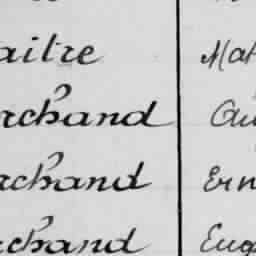 aitre Mat
rchand Au
rchand Ern
rchand Eug